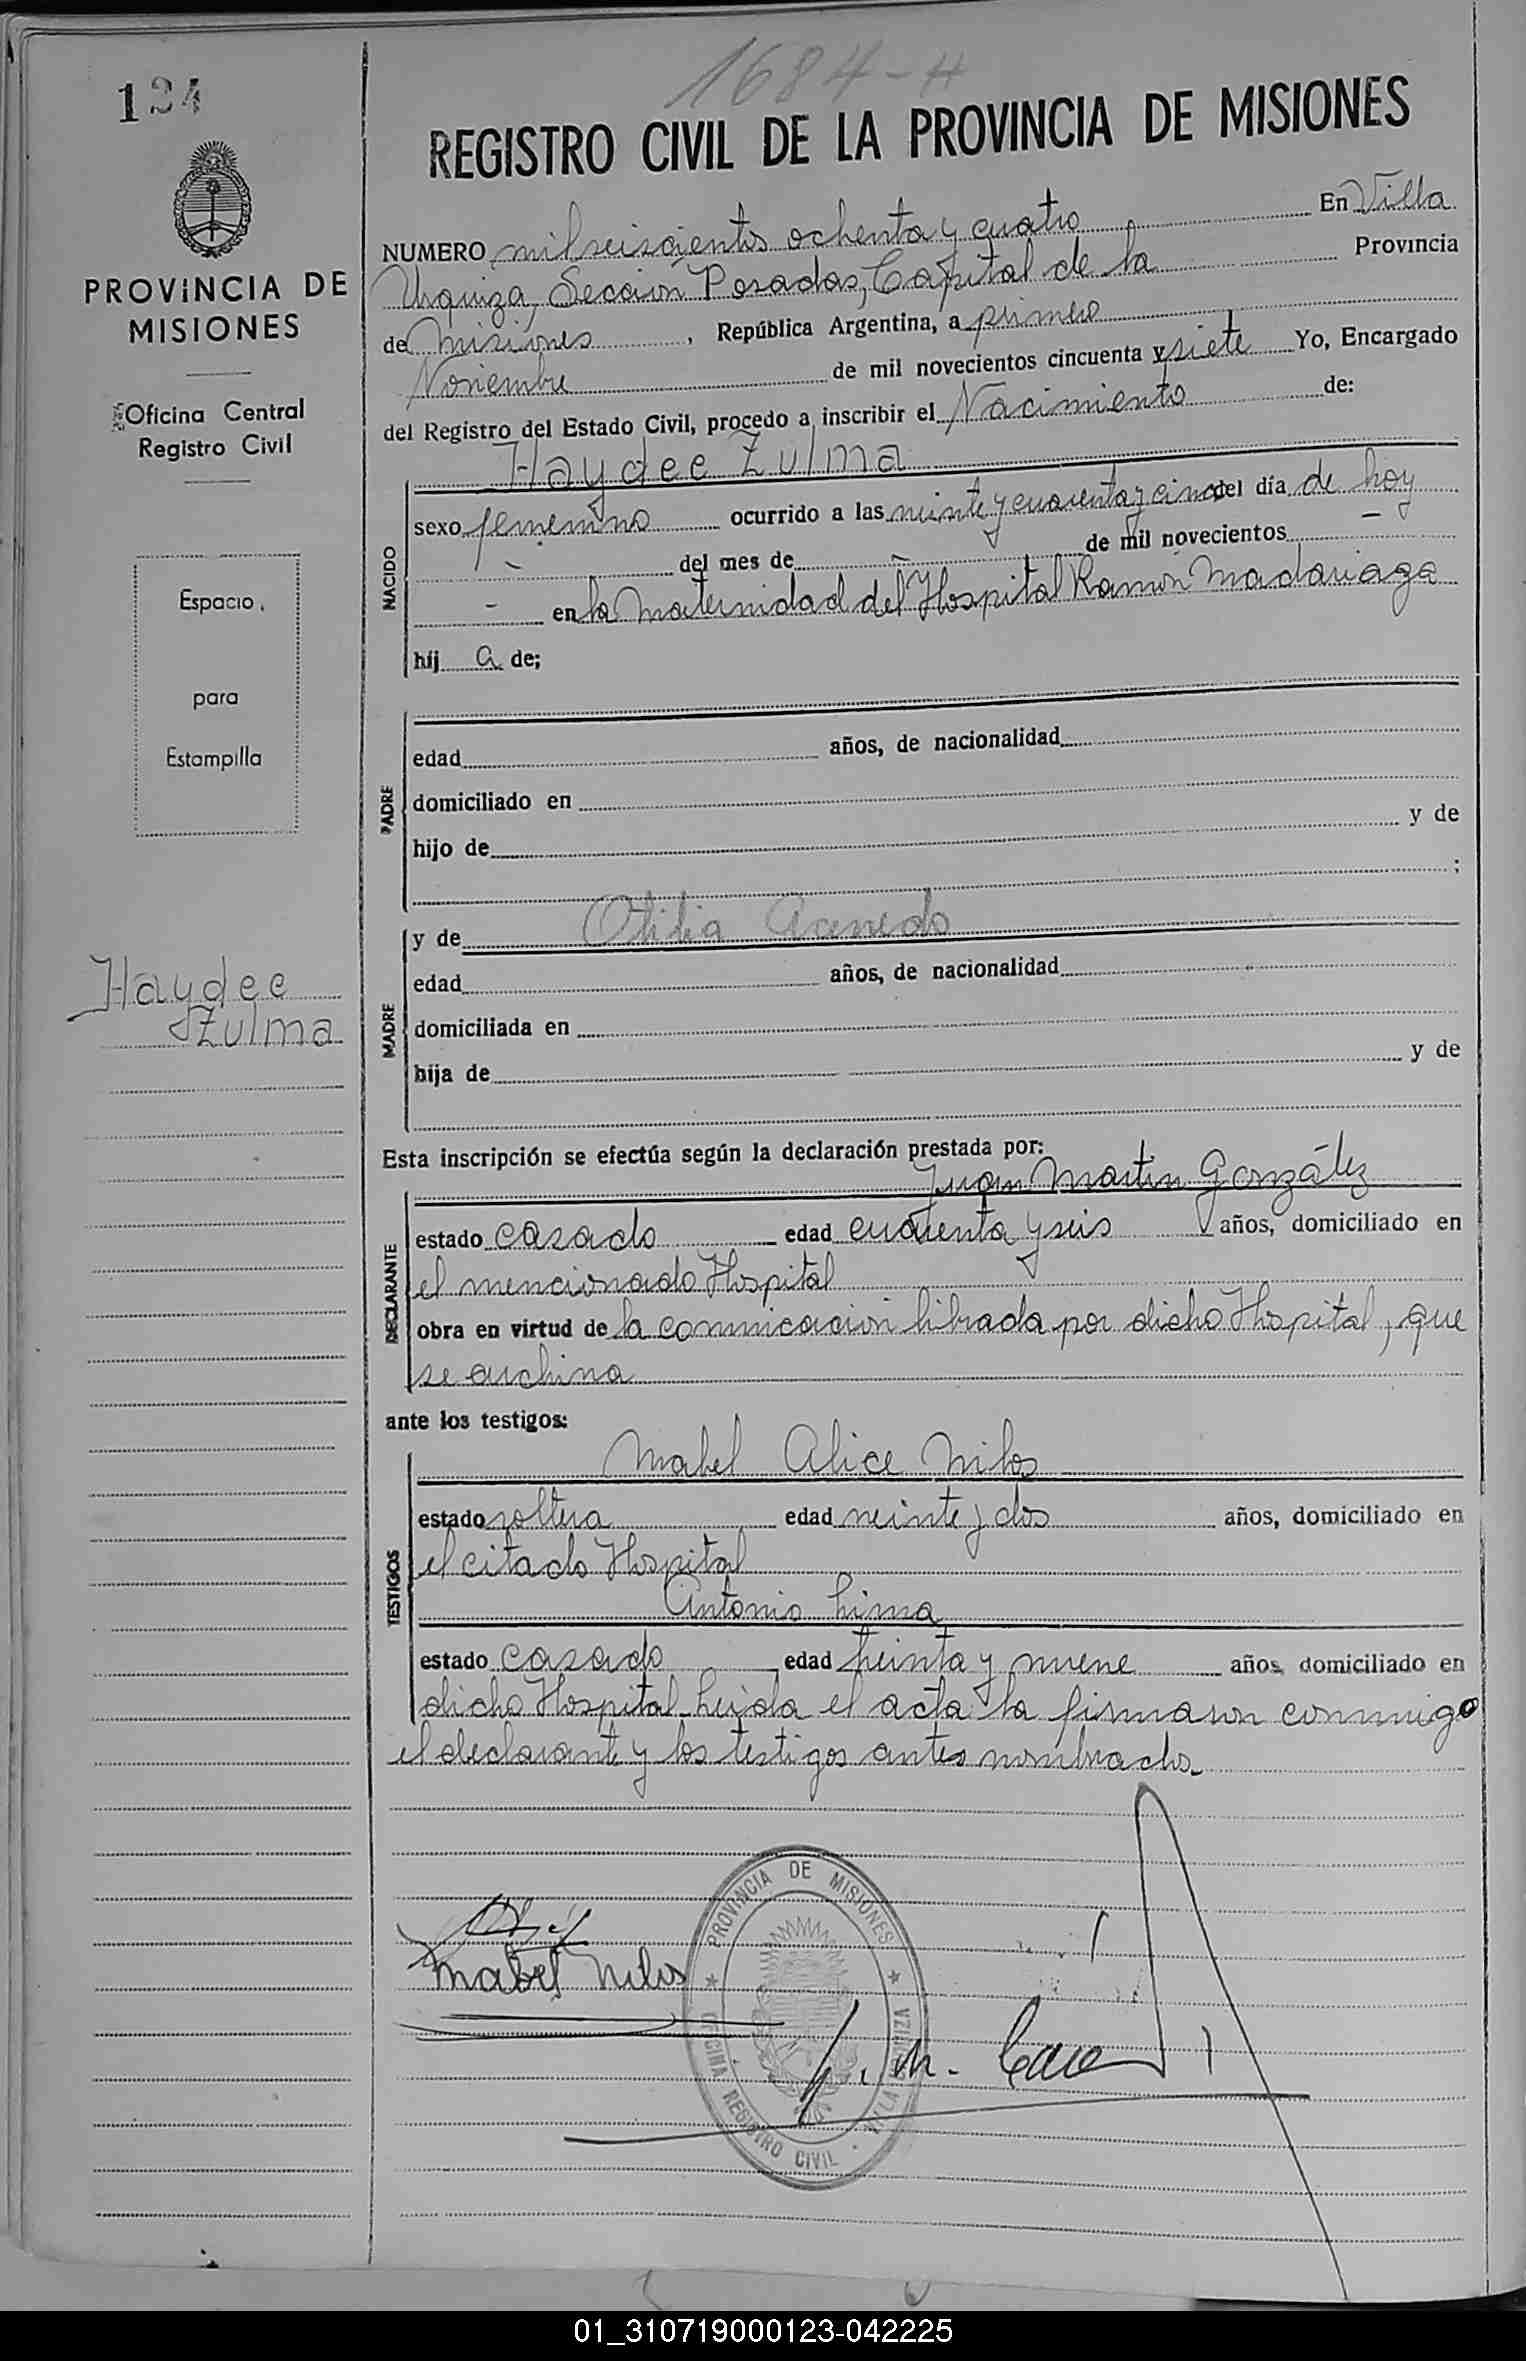 1684-H
124
REGISTRO CIVIL DE LA PROVINCIA DE MISIONES
PROVINCIA DE
MISIONES
Oficina Central
Registro Civil
Espacio
para
Estampilla
Haydee
Zulma
NUMERO mil seiscientos ochenta y cuatro En Villa
Urquiza, Sección Posadas, Capital de la Provincia
de Misiones, República Argentina, a primero
Noviembre de mil novecientos cincuenta y siete Yo, Encargado
del Registro del Estado Civil, procedo a inscribir el Nacimiento de:
Haydee Zulma
NACIDO
sexo femenino ocurrido a las veinte y cuarenta y cinco del día de hoy
- del mes de - de mil novecientos -
- en la Maternidad del Hospital Ramón Madariaga
hij a de;
PADRE
edad años, de nacionalidad
domiciliado en
hijo de y de
;
MADRE
y de Otilia Acevedo
edad años, de nacionalidad
domiciliada en
hija de y de
Esta inscripción se efectúa según la declaración prestada por:
Juan Martín González
DECLARANTE
estado casado edad cuarenta y seis años, domiciliado en
el mencionado Hospital
obra en virtud de la comunicación librada por dicho Hospital, que
se archiva
ante los testigos:
Mabel Alice Nilos
TESTIGOS
estado soltera edad veinte y dos años, domiciliado en
el citado Hospital
Antonio Lima
estado casado edad treinta y nueve años, domiciliado en
dicho Hospital. Leída el acta la firmaron conmigo
el declarante y los testigos antes nombrados.
Mabel Nilos
PROVINCIA DE MISIONES
OFICINA REGISTRO CIVIL
01_310719000123-042225